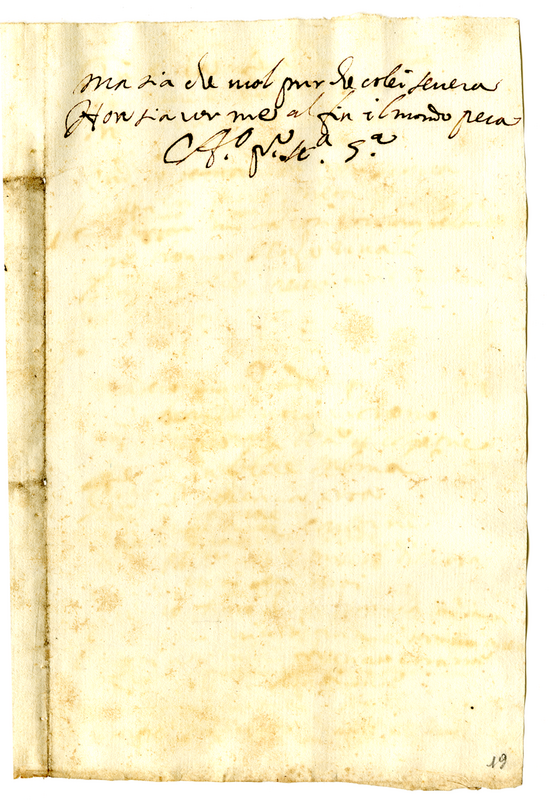 ma sia che vuol pur che colei severa
Hor sia ver me al fin il mondo pera
A.º p.ª sc.ª 5.ª
19